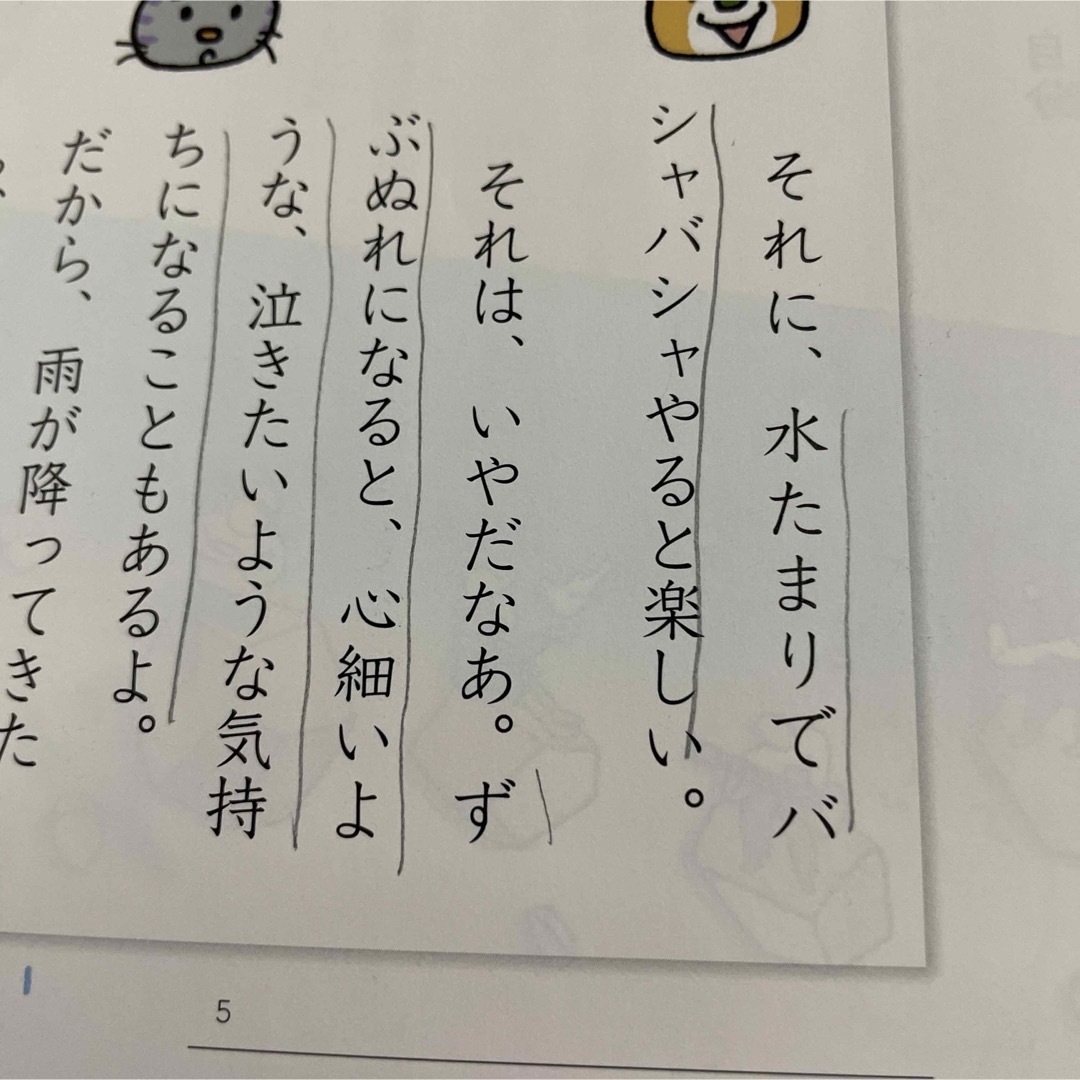 それに、水たまりでバ
シャバシャやると楽しい。
それは、いやだなあ。ず
ぶぬれになると、心細いよ
うな、泣きたいような気持
ちになることもあるよ。
だから、雨が降ってきた
5